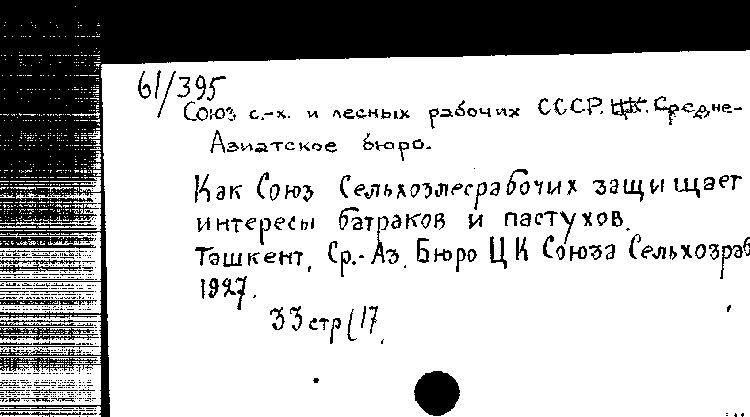 61/395
Союз с.-х. и лесных рабочих СССР. ЦК. Средне-
Азиатское бюро.
Как Союз Сельхозлесрабочих защищает
интересы батраков и пастухов.
Ташкент, Ср.-Аз. Бюро ЦК Союза Сельхозраб
1927.
33 стр (17.